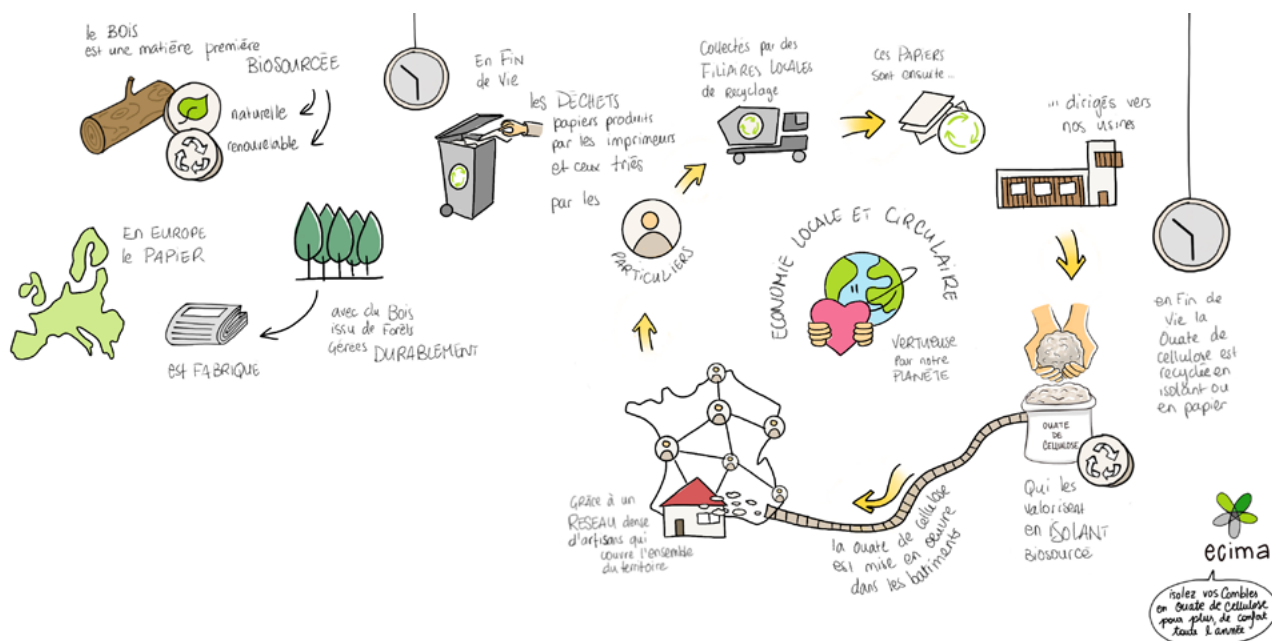 le BOIS
est une matière première
BIOSOURCÉE
naturelle
renouvelable
En EUROPE
le PAPIER
est FABRIQUE
avec du Bois
issu de Forêts
Gérées DURABLEMENT
En FIN
de Vie
les DÉCHETS
papiers produits
par les imprimeurs
et ceux triés
par les
PARTICULIERS
Collectés par des
FILIAIRES LOCALES
de recyclage
ces PAPIERS
sont ensuite...
... dirigés vers
nos usines
ECONOMIE LOCALE ET CIRCULAIRE
VERTUEUSE
Par notre
PLANÈTE
OUATE
DE
CELLULOSE
Qui les
valorisent
en ISOLANT
Biosourcé
la Ouate de cellulose
est mise en oeuvre
dans les batiments
GRÂCE à un
RESEAU dense
d'artisans qui
couvre l'ensemble
du territoire
en Fin de
Vie la
Ouate de
cellulose est
recyclée en
isolant ou
en papier
ecima
isolez vos Combles
en Ouate de Cellulose
pour plus, de confort
toute l'année